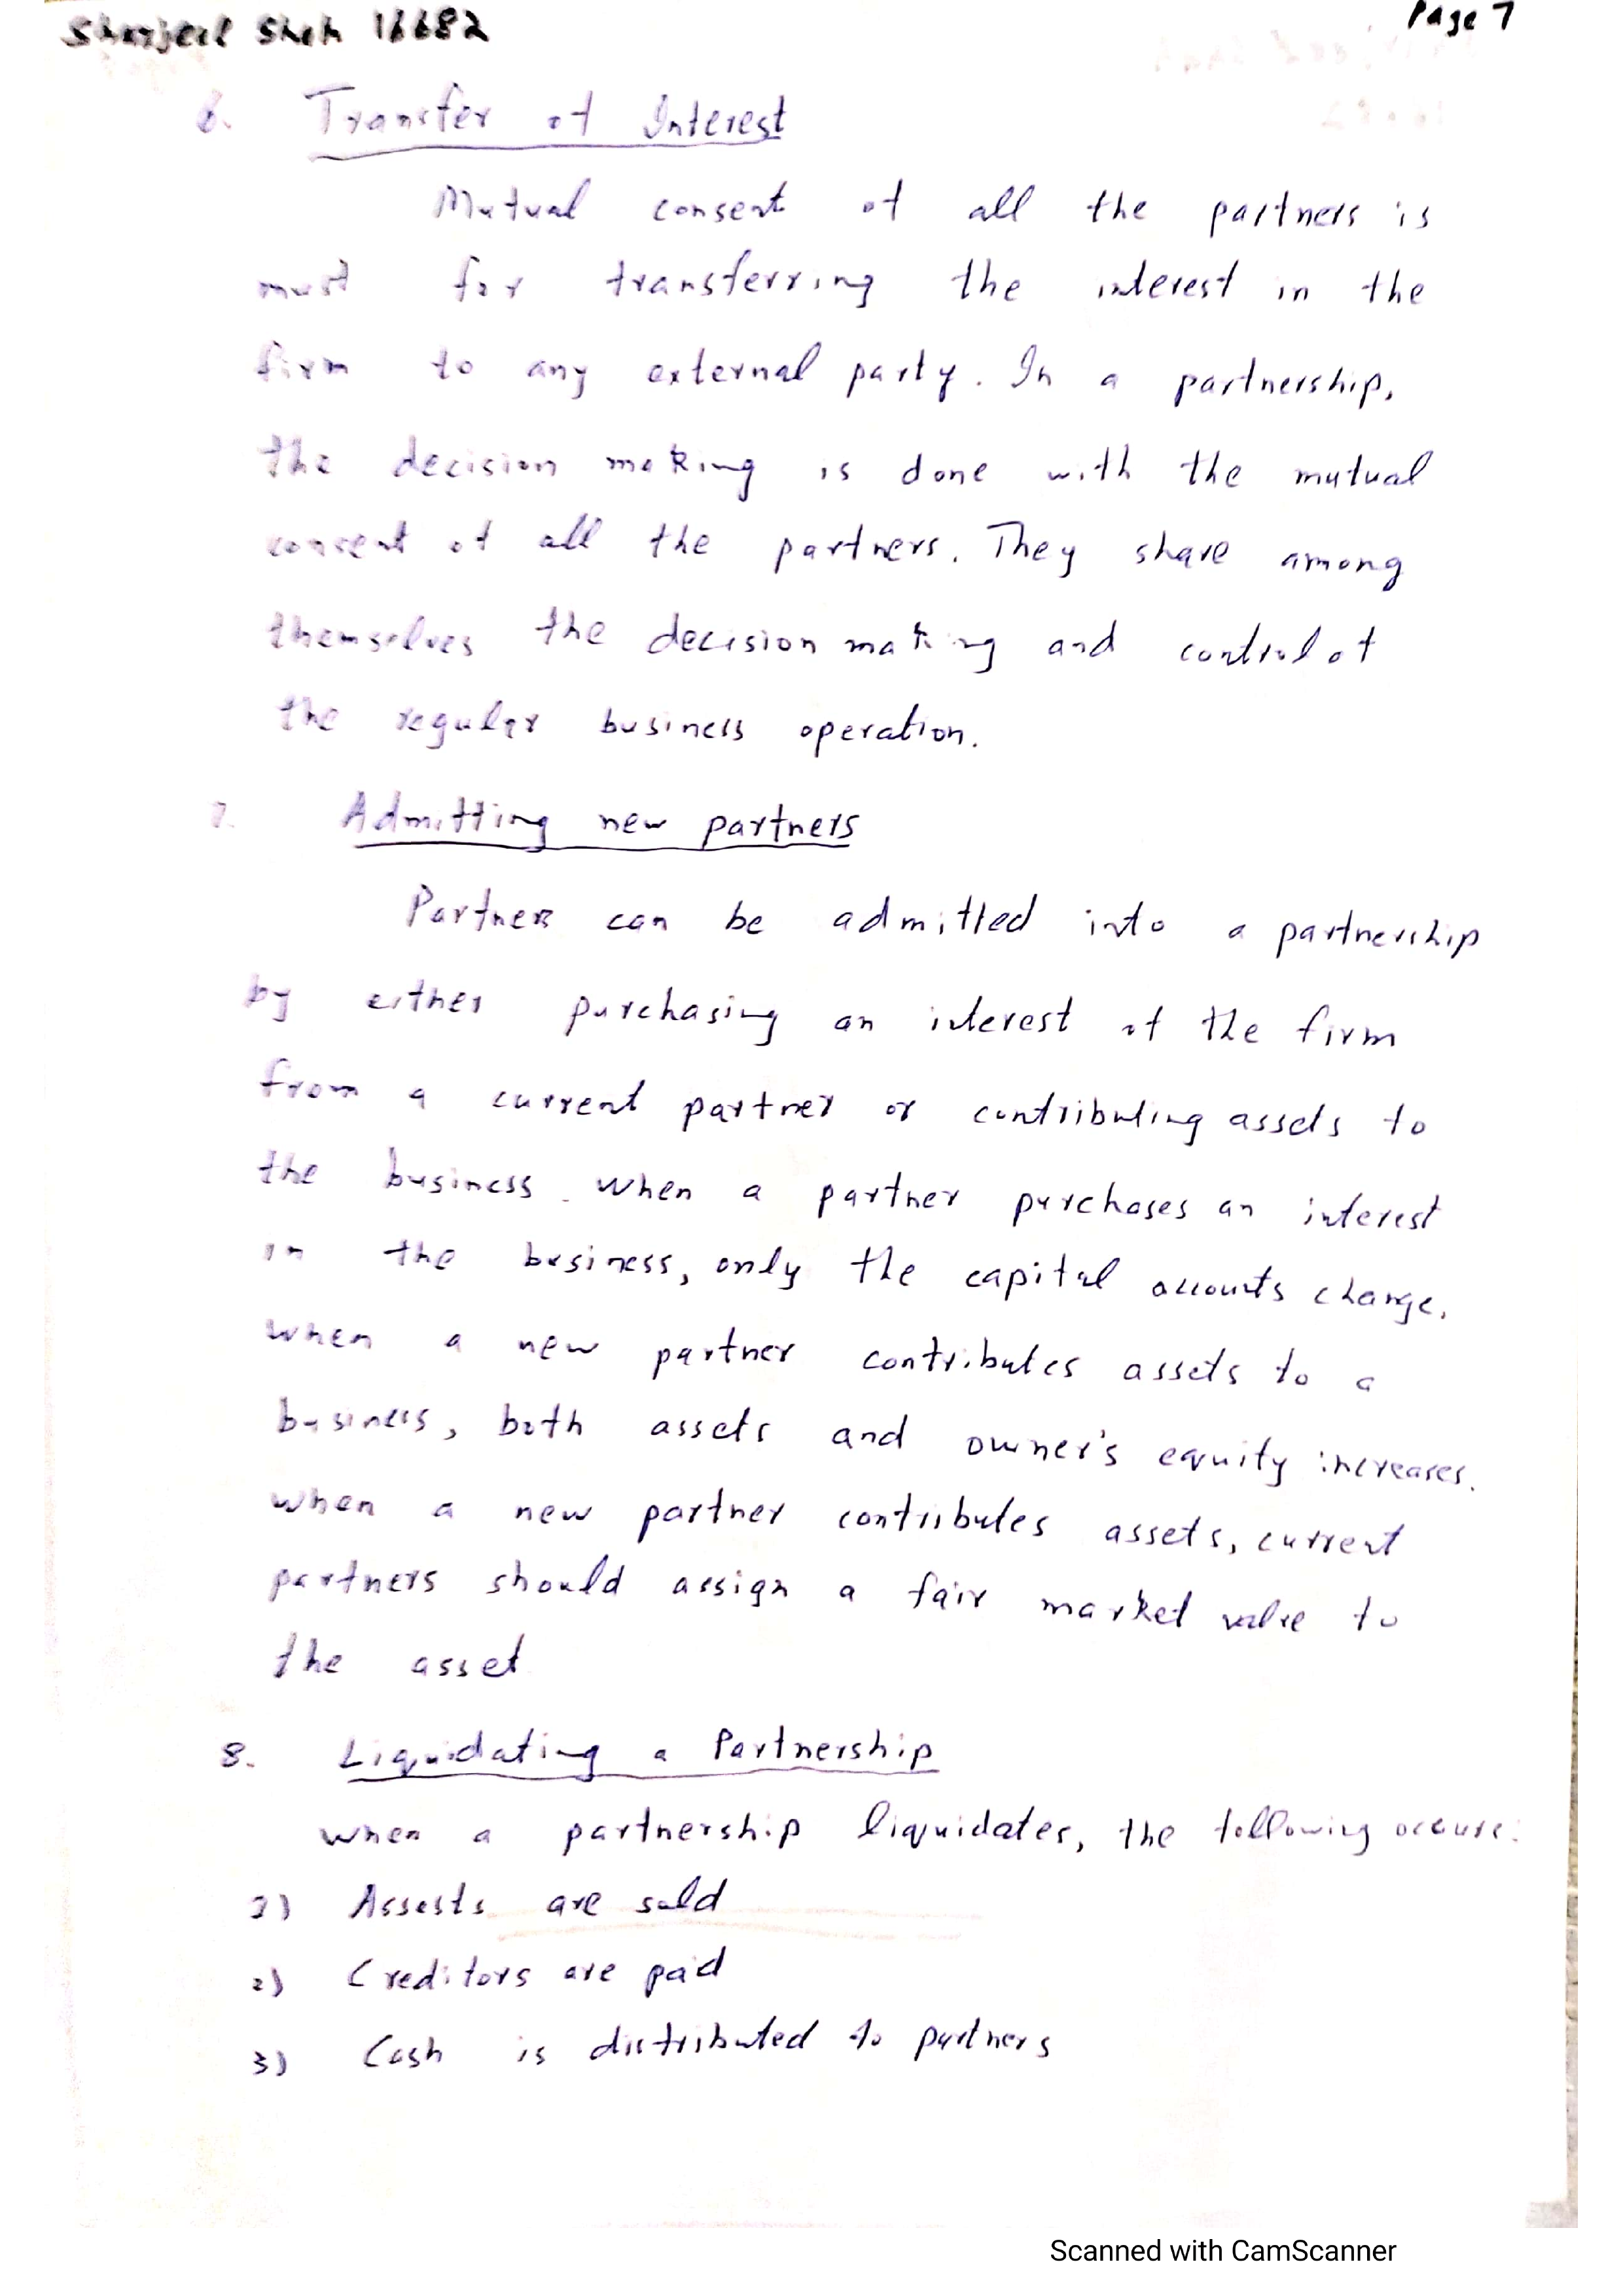 Sharjeel Shah 16682
Page 7
6. Transfer of Interest
Mutual consent of all the partners is
must for transferring the interest in the
firm to any external party. In a partnership,
the decision making is done with the mutual
consent of all the partners. They share among
themselves the decision making and control of
the regular business operation.
7. Admitting new partners
Partners can be admitted into a partnership
by either purchasing an interest of the firm
from a current partner or contributing assets to
the business. When a partner purchases an interest
in the business, only the capital accounts change.
When a new partner contributes assets to a
business, both assets and owner's equity increases.
When a new partner contributes assets, current
partners should assign a fair market value to
the asset
8. Liquidating a Partnership
When a partnership liquidates, the following occurs:
1) Assests are sold
2) Creditors are paid
3) Cash is distributed to partners
Scanned with CamScanner